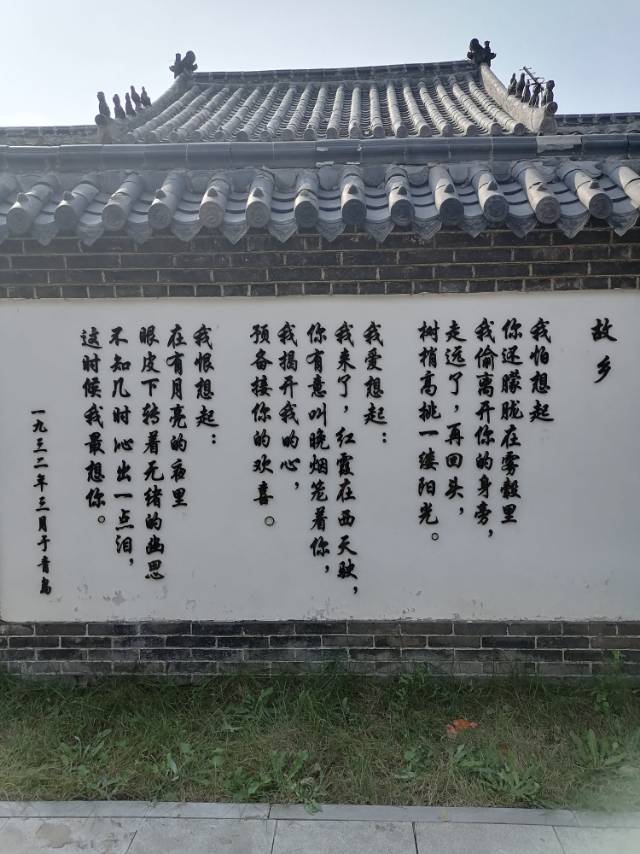 故乡
我怕想起
你还朦胧在雾縠里
我偷离开你的身旁，
走远了，再回头，
树梢高挑一缕阳光。
我爱想起：
我来了，红霞在西天驶，
你有意叫晚烟笼着你，
我揭开我的心，
预备接你的欢喜。
我恨想起：
在有月亮的夜里
眼皮下转着无绪的幽思
不知几时沁出一点泪，
这时候我最想你。
一九三二年三月于青岛